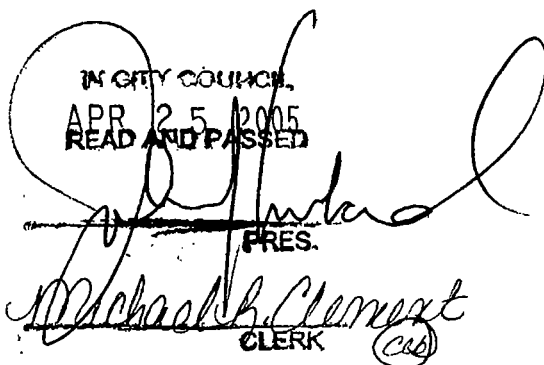 IN CITY COUNCIL
APR 25 2005
READ AND PASSED
PRES.
Michael R. Clement
CLERK